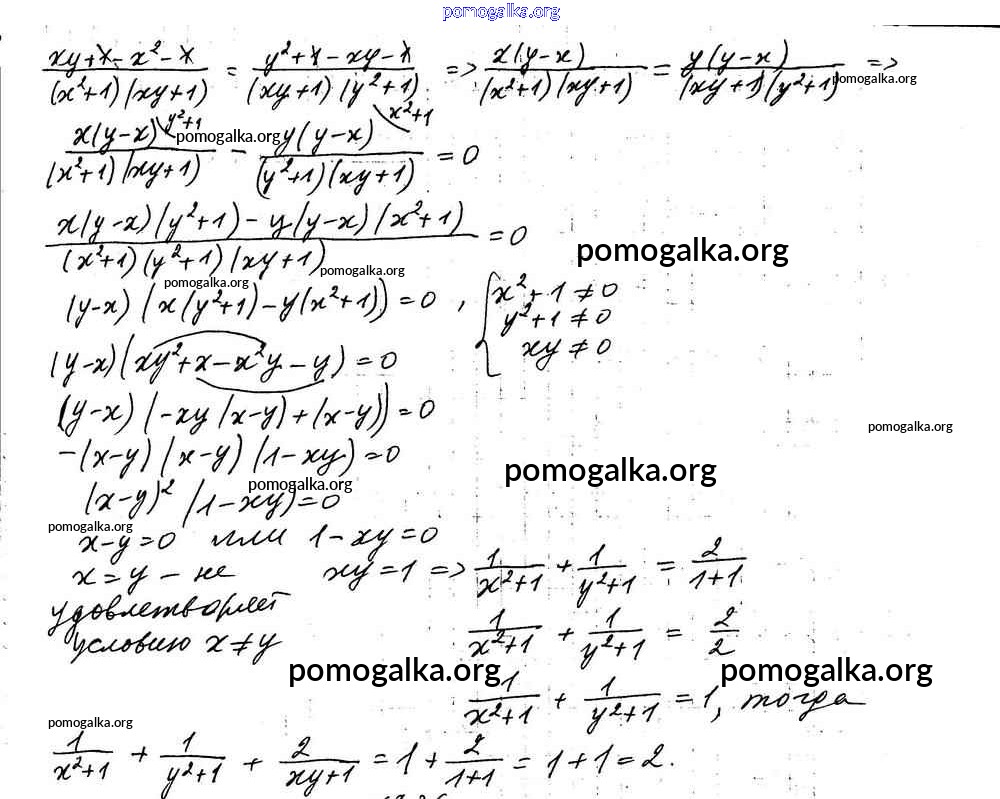 pomogalka.org
(xy + 1 - x² - 1)/((x²+1)(xy+1)) = (y² + 1 - xy - 1)/((xy+1)(y²+1)) => x(y-x)/((x²+1)(xy+1)) = y(y-x)/((xy+1)(y²+1)) =>
pomogalka.org
x(y-x)\y²+1/((x²+1)(xy+1)) - y(y-x)\x²+1/((y²+1)(xy+1)) = 0
pomogalka.org
(x(y-x)(y²+1) - y(y-x)(x²+1))/((x²+1)(y²+1)(xy+1)) = 0
pomogalka.org
pomogalka.org
pomogalka.org
(y-x)(x(y²+1) - y(x²+1)) = 0, { x²+1 ≠ 0
y²+1 ≠ 0
xy ≠ 0
(y-x)(xy² + x - x²y - y) = 0
(y-x)(-xy(x-y) + (x-y)) = 0
pomogalka.org
-(x-y)(x-y)(1-xy) = 0
pomogalka.org
pomogalka.org
(x-y)²(1-xy) = 0
pomogalka.org
x-y=0 или 1-xy=0
x=y - не xy=1 => 1/(x²+1) + 1/(y²+1) = 2/(1+1)
удовлетворяет
условию x≠y 1/(x²+1) + 1/(y²+1) = 2/2
pomogalka.org pomogalka.org
1/(x²+1) + 1/(y²+1) = 1, тогда
pomogalka.org
1/(x²+1) + 1/(y²+1) + 2/(xy+1) = 1 + 2/(1+1) = 1+1 = 2.